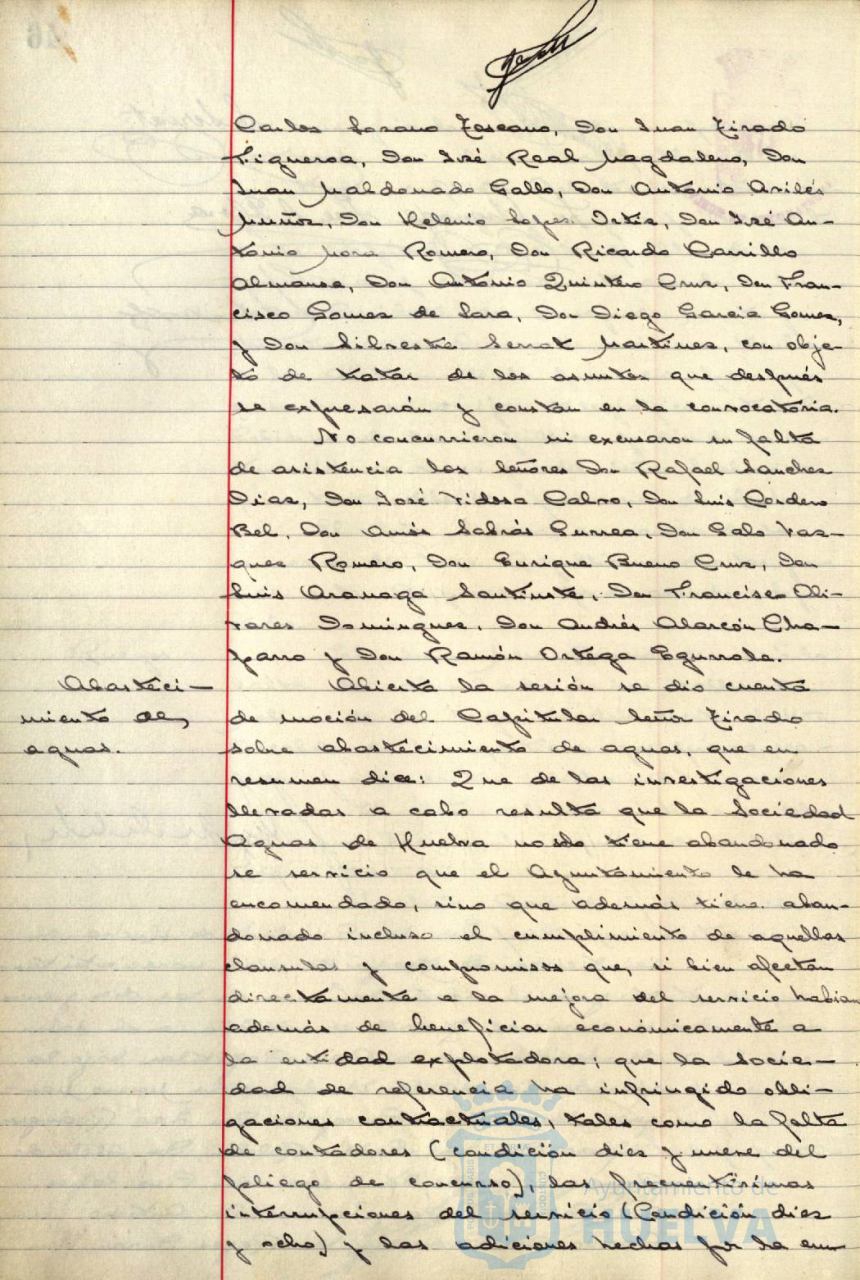 Carlos Lozano Toscano, Don Juan Tirado
Figueroa, Don José Real Magdaleno, Don
Juan Maldonado Gallo, Don Antonio Avilés
Muñoz, Don Helenio Lopez Ortiz, Don José An-
tonio Mora Romero, Don Ricardo Carrillo
Almansa, Don Antonio Quintero Cruz, Don Fran-
cisco Gomez de Lara, Don Diego Garcia Gomez,
y Don Silvestre Serrat Martinez, con obje-
to de tratar de los asuntos que después
se expresarán y constan en la convocatoria.
No concurrieron ni excusaron su falta
de asistencia los Señores Don Rafael Sanchez
Diaz, Don José Vidosa Calvo, Don Luis Cordero
Bel, Don Amós Sabrás Gurrea, Don Galo Vaz-
quez Romero, Don Enrique Bueno Cruz, Don
Luis Aranaga Santiuste, Don Francisco Oli-
vares Dominguez, Don Andrés Alarcón Cha-
parro y Don Ramón Ortega Egurrola.
Abasteci-
miento de
aguas.
Abierta la sesión se dio cuenta
de moción del Capitular Señor Tirado
sobre abastecimiento de aguas, que en
resumen dice: Que de las investigaciones
llevadas a cabo resulta que la Sociedad
Aguas de Huelva no solo tiene abandonado
el servicio que el Ayuntamiento le ha
encomendado, sino que además tiene aban-
donado incluso el cumplimiento de aquellas
clausulas y compromisos que, si bien afectan
directamente a la mejora del servicio habian
además de beneficiar económicamente a
la entidad explotadora; que la Socie-
dad de referencia ha infringido obli-
gaciones contractuales, tales como la falta
de contadores (condición diez y nueve del
pliego de concurso), las frecuentísimas
interrupciones del servicio (Condición diez
y ocho) y las adiciones hechas por la em-
Ayuntamiento de
HUELVA